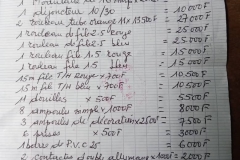 1 disjoncteur 10/30 = 10 000 F
2 rouleaux tube orange 11 x 13500F = 27000 F
1 rouleau de fil 2.5 rouge = 25 000 F
1 rouleau de fil 2.5 bleu = 25 000 F
1 rouleau fil 1.5 rouge = 15 000 F
1 rouleau fil 1.5 bleu = 15 000 F
15 m fil TH rouge x 700F = 10.500 F
15 m fil TH bleu x 700F = 10500 F
11 douilles x 500F = 5500 F
8 ampoules simple x 1000F = 8000 F
3 ampoules de décoration x 2500F = 7500 F
6 prises x 500F = 3000 F
1 barre de P.V.C 25 =
2 contacts double allumage x 1000F = 2000 F